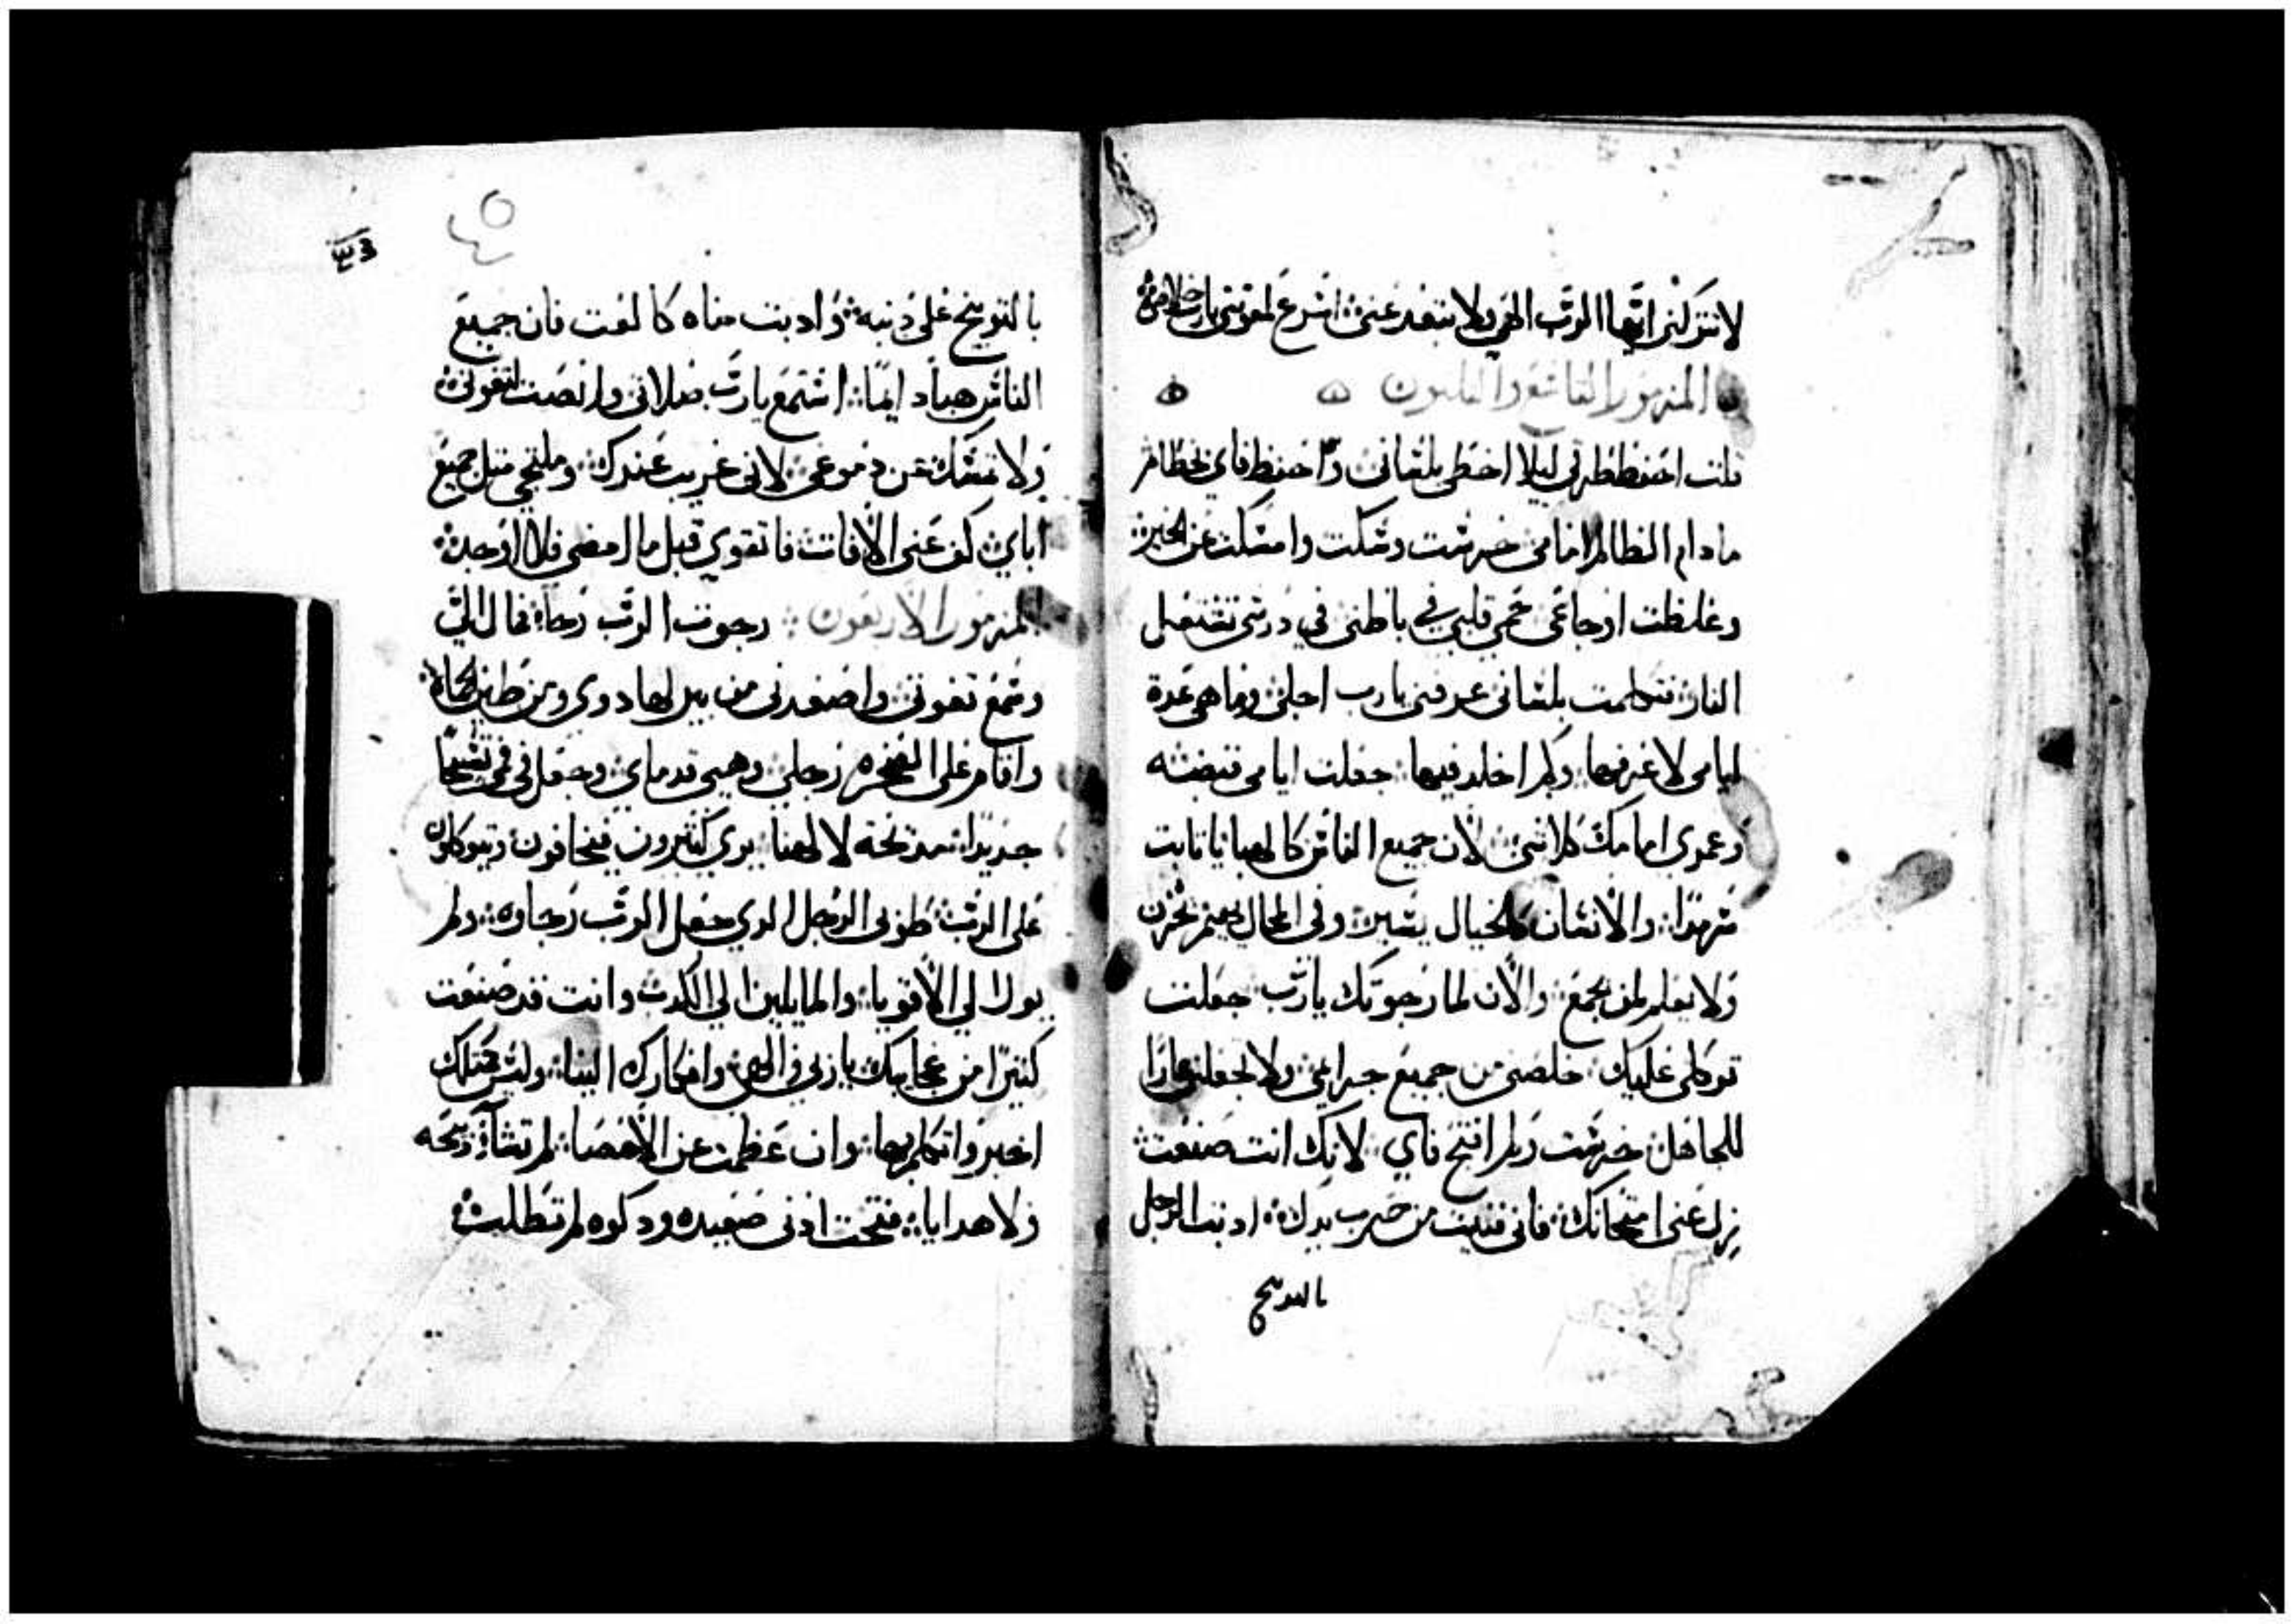 لا تتركني ايها الرب الهي ولا تبعد عني اسرع لمعونتي يارب خلاصي
المزمور التاسع والثلثون
قلت احفظ طرقي ليلا اخطي بلساني واحفظ فاي بخطام
مادام الظالم امامي خرست وسكت وامسكت عن الخير
وغلظت اوجاعي حمي قلبي في باطني في درسي تشتعل
النار تكلمت بلساني عرفني يارب اجلي وما هي عدة
ايامي لاعرفها ولم اخلد فيها جعلت ايامي فتيضه
وعمري امامك كلا شي لان جميع الناس كالهبا يا ثابت
سرمدا والانسان كالخيال يسير وفي المحال يهيم يخزن
ولا يعلم لمن يجمع والان لما رجوتك يارب جعلت
توكلي عليك خلصني من جميع جرايمي ولا تجعلني عارا
للجاهل خرست ولم افتح فاي لانك انت صنعت
نزل عني امتحانك فاني فنيت من ضرب يدك ادبت الرجل
بالتوبيخ
٤٥
بالتوبيخ علي ذنبه وادبت مناه كالعت فان جميع
الناس هبا دايما استمع يارب صلاتي وانصت لتعوني
ولا تمسك عن دموعي لاني غريب عندك وملتجي مثل جميع
اباي كف عني الافات فاتقوي قبل ما امضي فلا اوجد
المزمور الاربعون رجوت الرب رجا فمال الي
وسمع تعوني واصعدني من بير لهادوي ومن طين لحاة
واقام علي الصخره رجلي وهيي قدماي وجعل في فمي تسبيحا
جديدا تمدحة لالهنا يري كثيرون فيخافون ويتوكلون
علي الرب طوبي الرجل الدي جعل الرب رجاوه ولم
يولا لي الاقويا والمايلين الي الكدب وانت قد صنعت
كثيرا من عجايبك ياربي والهي وافكارك الينا وليس كمثلك
اخبر واتكلم بها وان عظمت عن الاحصا لم تشا دبيحه
ولا هدايا فتحت ادني صعيده ودكوه لم تطلب